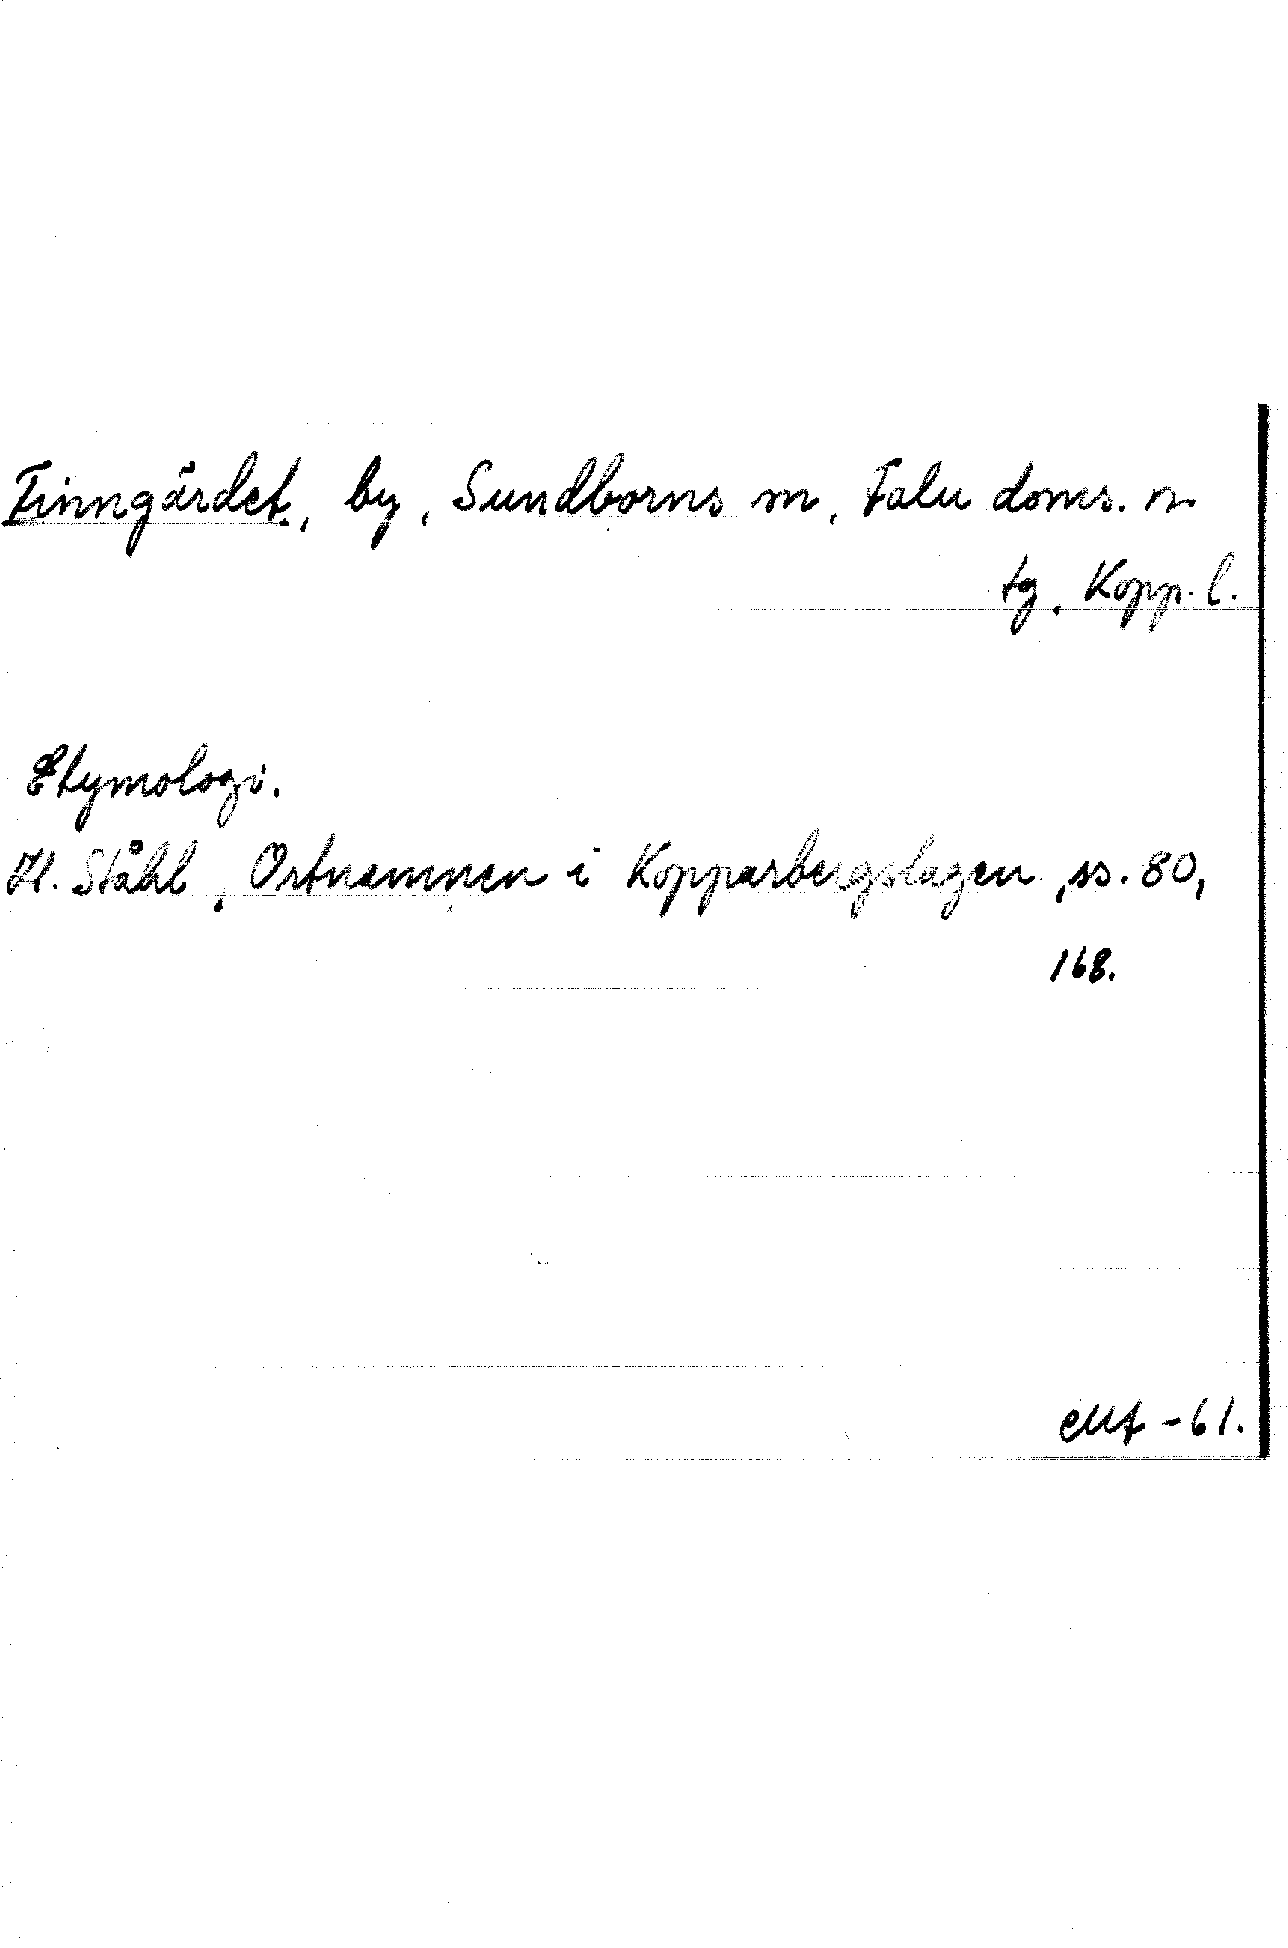 Finngärdet, by, Sundborns sn, Falu doms. n
tg, Kopp. l.
Etymologi.
H. Ståhl, Ortnamnen i Kopparbergslagen, ss. 80,
168.
-61.